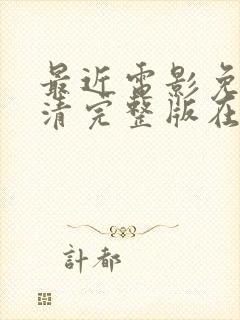 最近电影免
清完整版在
計都